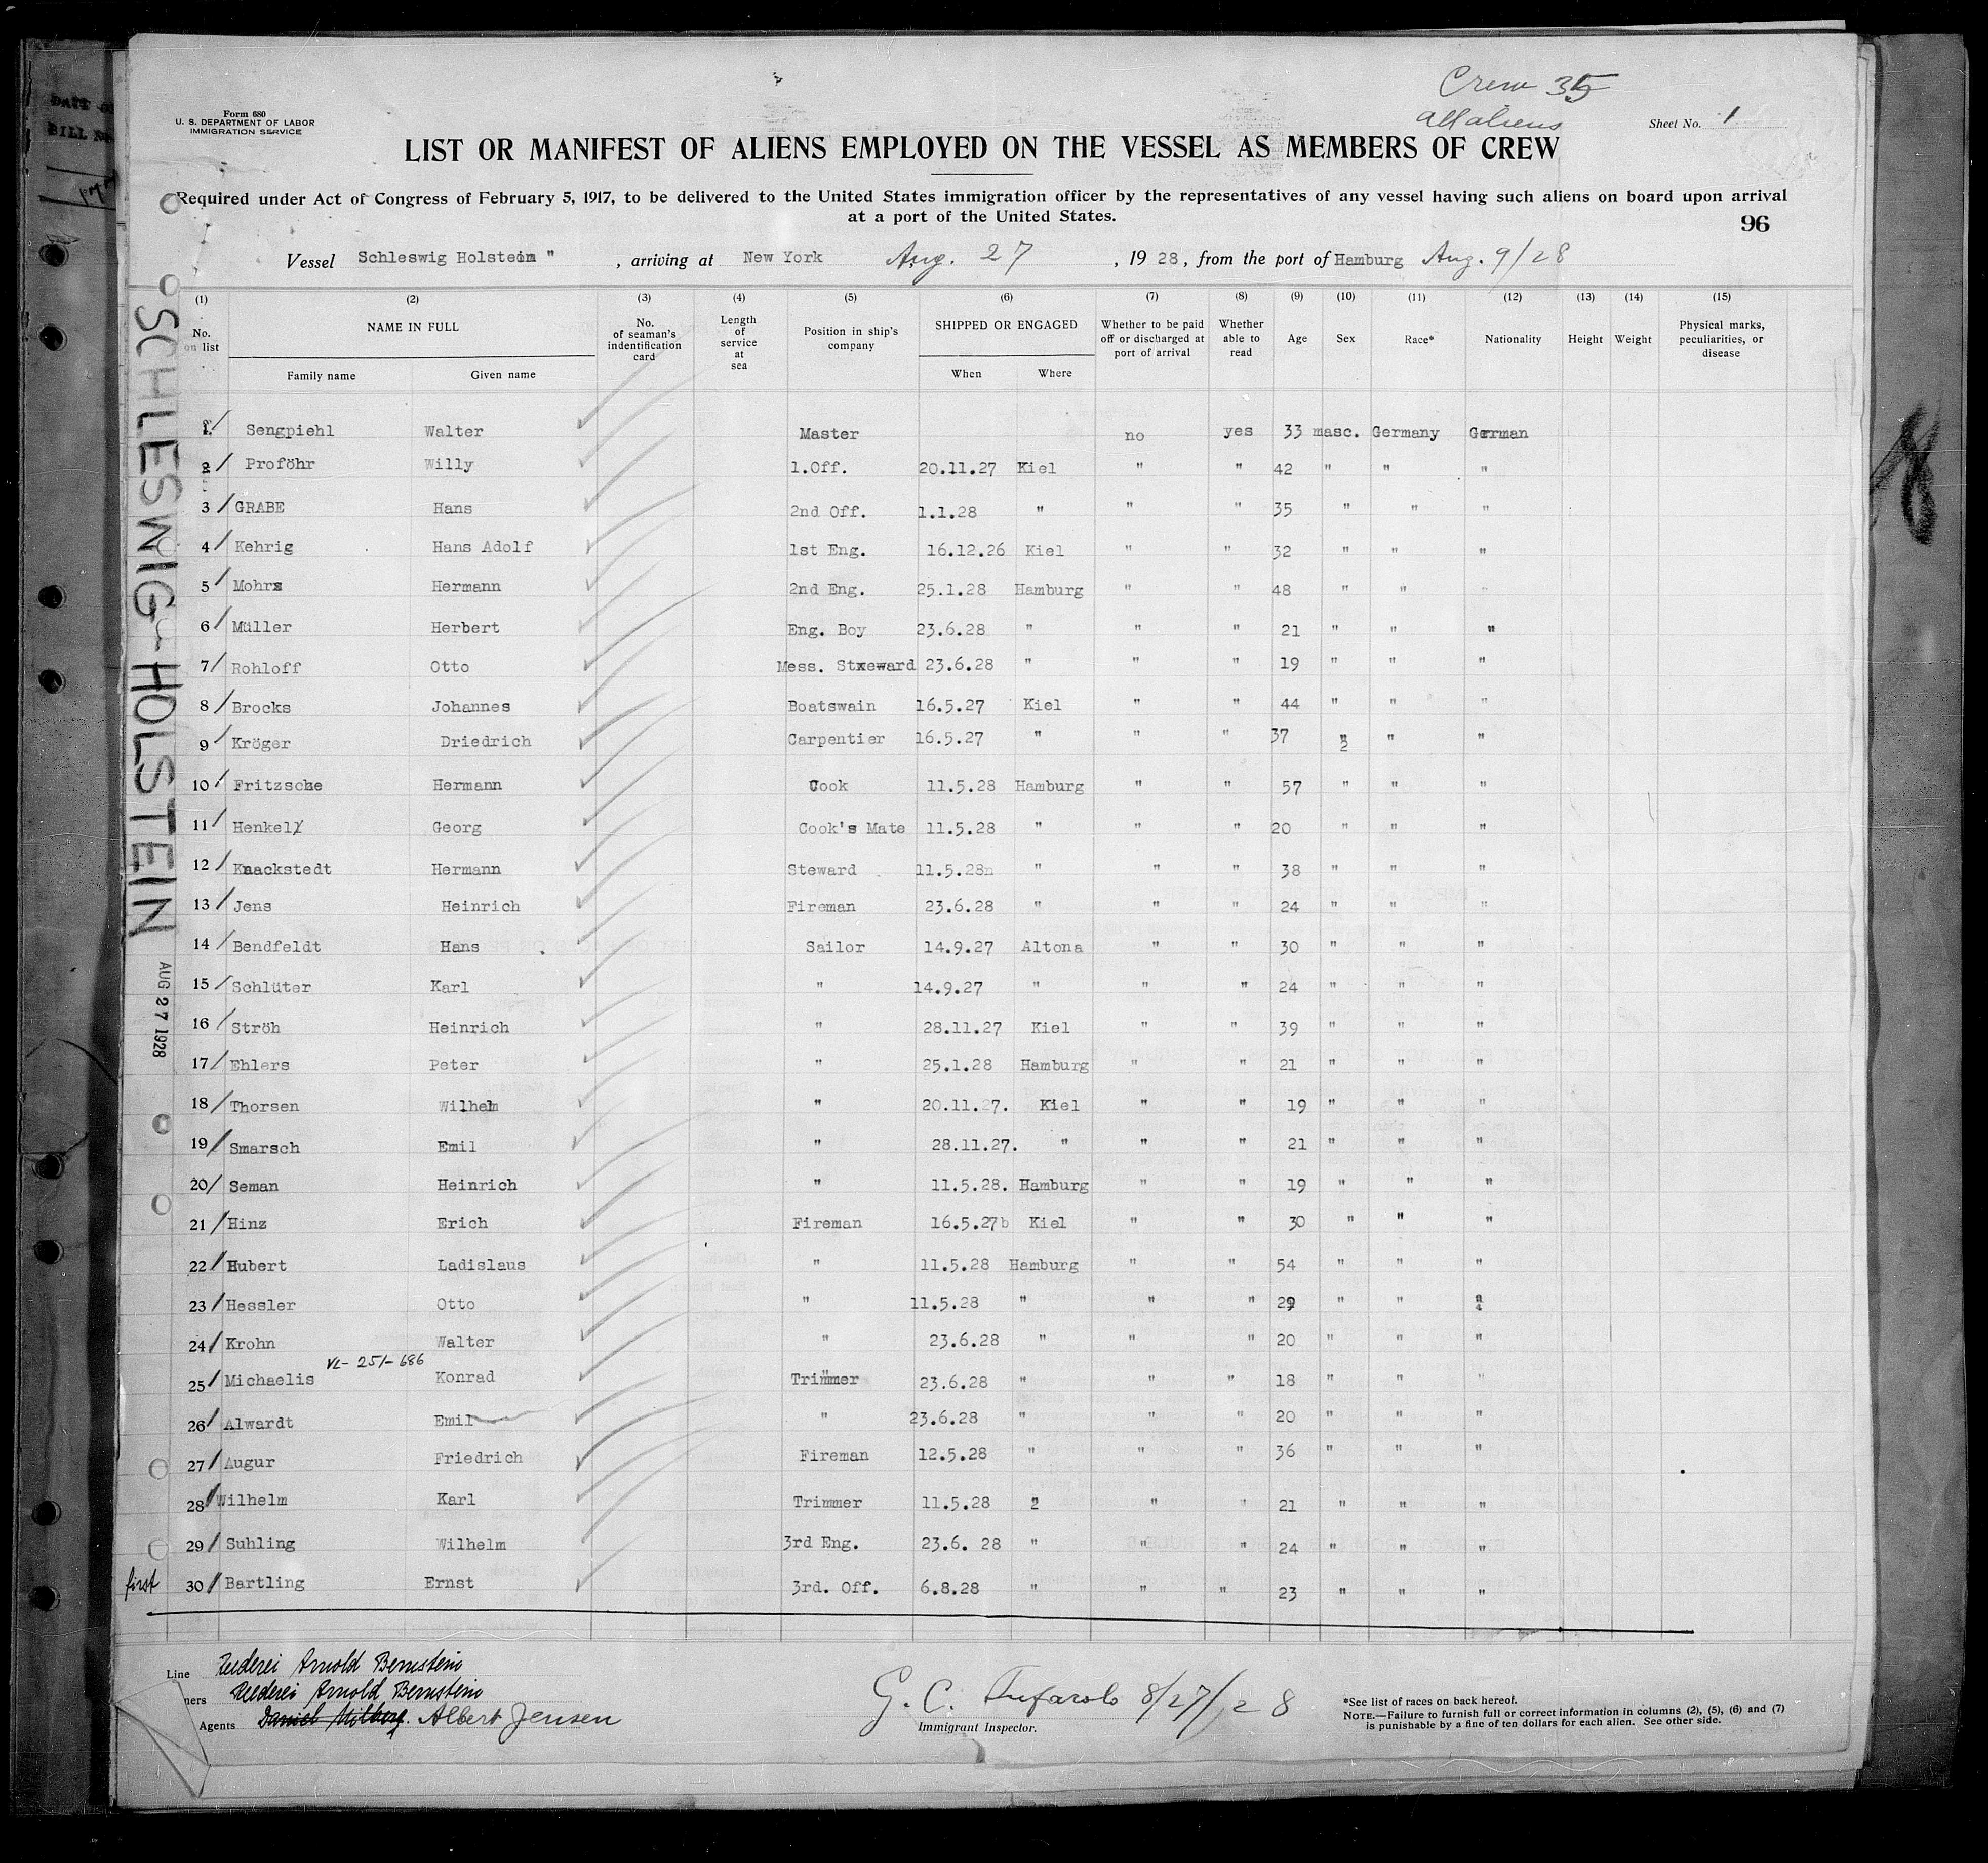 Crew 35
all aliens
Form 680
U. S. DEPARTMENT OF LABOR
IMMIGRATION SERVICE
Sheet No. 1
LIST OR MANIFEST OF ALIENS EMPLOYED ON THE VESSEL AS MEMBERS OF CREW
Required under Act of Congress of February 5, 1917, to be delivered to the United States immigration officer by the representatives of any vessel having such aliens on board upon arrival
at a port of the United States.
96
Vessel Schleswig Holstein " , arriving at New York Aug. 27 , 19 28, from the port of Hamburg Aug. 9/28
(1) (2) (3) (4) (5) (6) (7) (8) (9) (10) (11) (12) (13) (14) (15)
No. on list NAME IN FULL Family name Given name No. of seaman's indentification card Length of service at sea Position in ship's company SHIPPED OR ENGAGED When Where Whether to be paid off or discharged at port of arrival Whether able to read Age Sex Race* Nationality Height Weight Physical marks, peculiarities, or disease
1 Sengpiehl Walter Master no yes 33 masc. Germany German
2 Proföhr Willy 1.Off. 20.11.27 Kiel " " 42 " " "
3 GRABE Hans 2nd Off. 1.1.28 " " " 35 " " "
4 Kehrig Hans Adolf 1st Eng. 16.12.26 Kiel " " 32 " " "
5 Mohrs Hermann 2nd Eng. 25.1.28 Hamburg " " 48 " " "
6 Müller Herbert Eng. Boy 23.6.28 " " " 21 " " "
7 Rohloff Otto Mess. Stxeward 23.6.28 " " " 19 " " "
8 Brocks Johannes Boatswain 16.5.27 Kiel " " 44 " " "
9 Kröger Driedrich Carpentier 16.5.27 " " " 37 " 2 " "
10 Fritzsche Hermann Cook 11.5.28 Hamburg " " 57 " " "
11 Henkel Georg Cook's Mate 11.5.28 " " " 20 " " "
12 Knackstedt Hermann Steward 11.5.28n " " " 38 " " "
13 Jens Heinrich Fireman 23.6.28 " " " 24 " " "
14 Bendfeldt Hans Sailor 14.9.27 Altona " " 30 " " "
15 Schlüter Karl " 14.9.27 " " " 24 " " "
16 Ströh Heinrich " 28.11.27 Kiel " " 39 " " "
17 Ehlers Peter " 25.1.28 Hamburg " " 21 " " "
18 Thorsen Wilhelm " 20.11.27. Kiel " " 19 " " "
19 Smarsch Emil " 28.11.27. " " " 21 " " "
20 Seman Heinrich " 11.5.28. Hamburg " " 19 " " "
21 Hinz Erich Fireman 16.5.27b Kiel " " 30 " " "
22 Hubert Ladislaus " 11.5.28 Hamburg " " 54 " " "
23 Hessler Otto " 11.5.28 " " " 29 " " "
24 Krohn Walter " 23.6.28 " " " 20 " " "
VL-251-686
25 Michaelis Konrad Trimmer 23.6.28 " " " 18 " " "
26 Alwardt Emil " 23.6.28 " " " 20 " " "
27 Augur Friedrich Fireman 12.5.28 " " " 36 " " "
28 Wilhelm Karl Trimmer 11.5.28 2 " " 21 " " "
29 Suhling Wilhelm 3rd Eng. 23.6. 28 " " " 24 " " "
first 30 Bartling Ernst 3rd. Off. 6.8.28 " " " 23 " " "
SCHLESWIG-HOLSTEIN
AUG 27 1928
Line Rederei Arnold Bernstein
ners Reederei Arnold Bernstein
Agents Daniel Milberg. Albert Jensen
G. C. Tufarolo 8/27/28
Immigrant Inspector.
*See list of races on back hereof.
NOTE.—Failure to furnish full or correct information in columns (2), (5), (6) and (7)
is punishable by a fine of ten dollars for each alien. See other side.